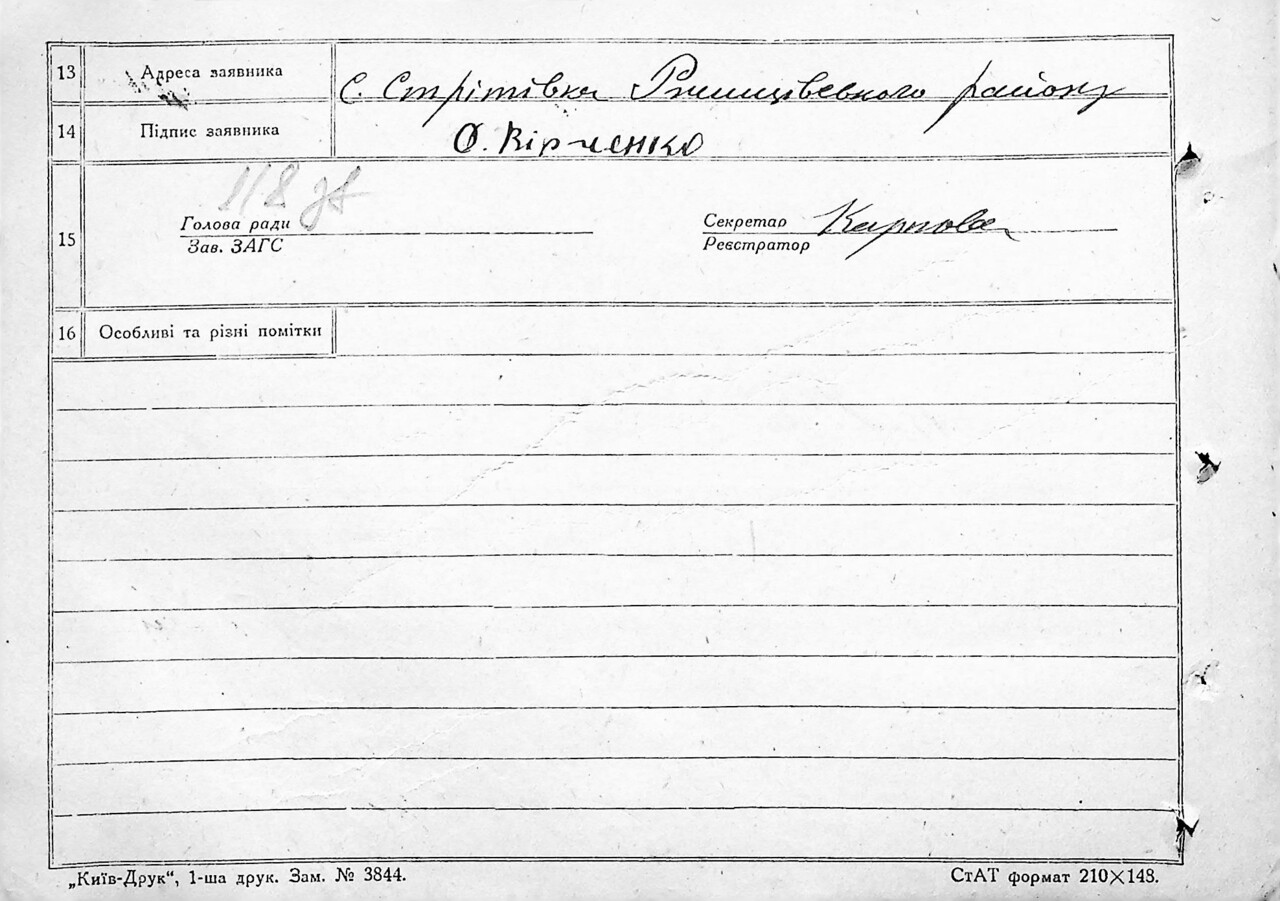 13 Адреса заявника с. Стрітівка Ржищівського району
14 Підпис заявника О. Вірченко
118
15 Голова ради Секретар Карпова
Зав. ЗАГС Реєстратор
16 Особливі та різні помітки
„Київ-Друк“, 1-ша друк. Зам. № 3844. СтАТ формат 210×148.